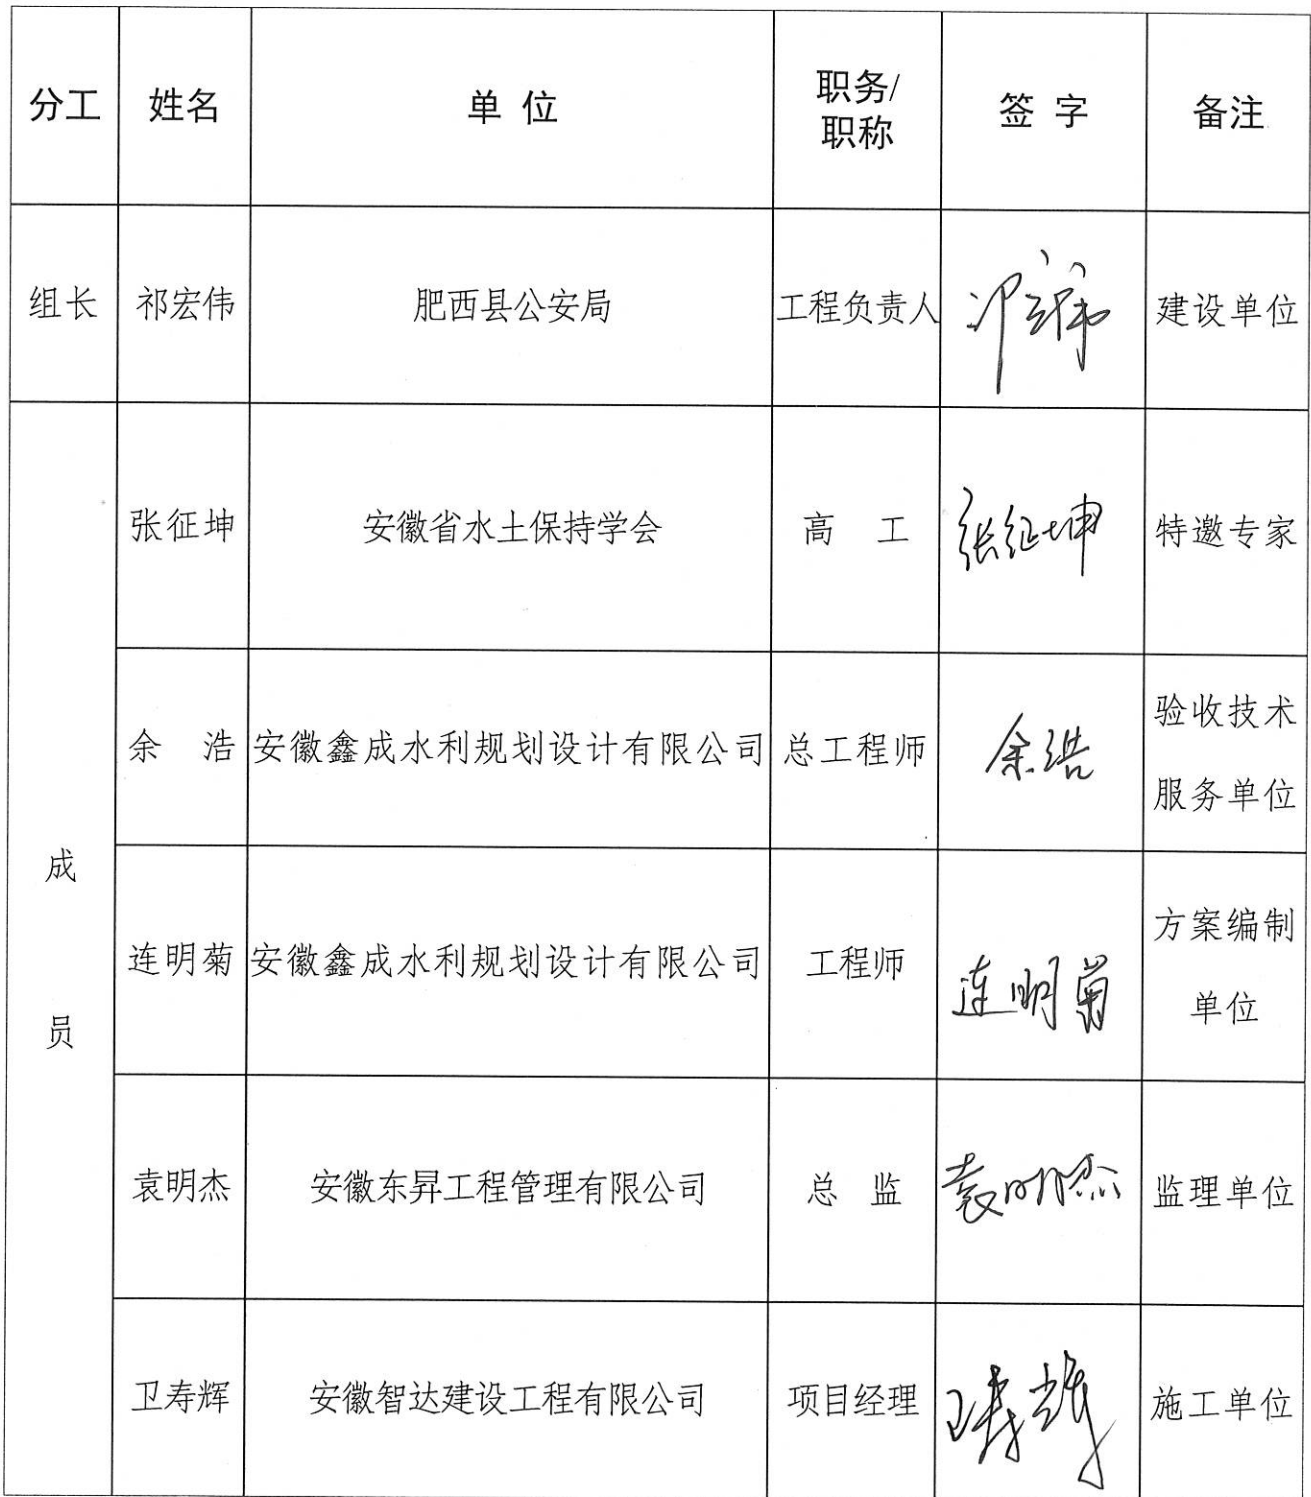 分工 姓名 单 位 职务/ 签 字 备注
职称
组长 祁宏伟 肥西县公安局 工程负责人 祁宏伟 建设单位
成
员
张征坤 安徽省水土保持学会 高 工 张征坤 特邀专家
余 浩 安徽鑫成水利规划设计有限公司 总工程师 余浩 验收技术
服务单位
连明菊 安徽鑫成水利规划设计有限公司 工程师 连明菊 方案编制
单位
袁明杰 安徽东昇工程管理有限公司 总 监 袁明杰 监理单位
卫寿辉 安徽智达建设工程有限公司 项目经理 卫寿辉 施工单位